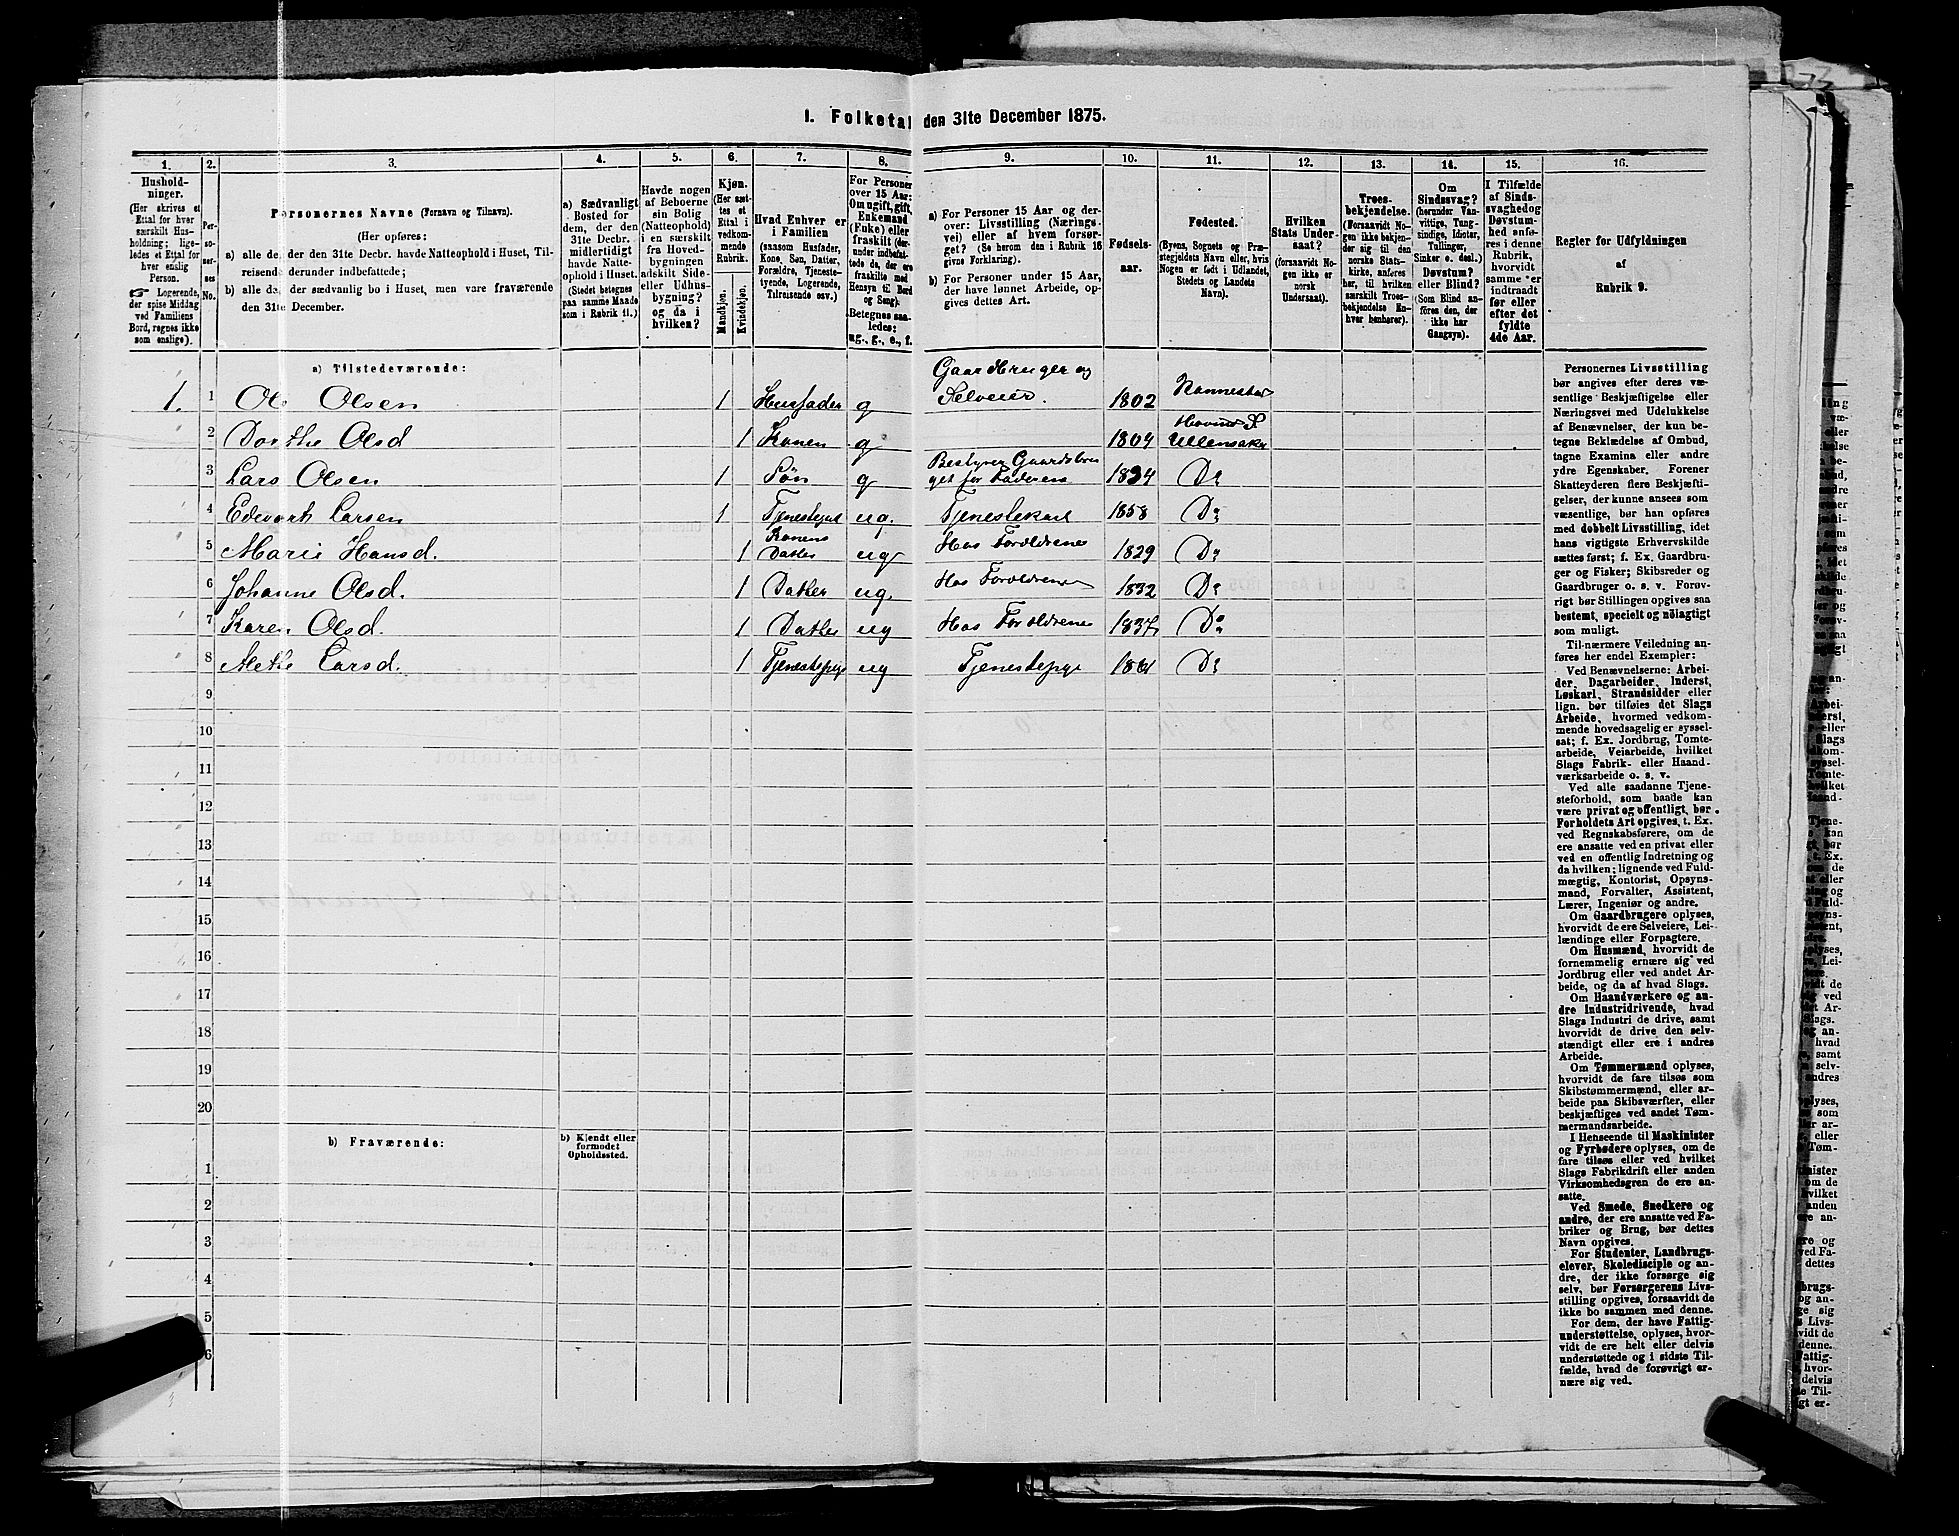 1. Folketal den 31te December 1875.
1. 2. 3. 4. 5. 6. 7. 8. 9. 10. 11. 12. 13. 14. 15. 16.
Hushold-
ninger.
(Her skrives et
Ettal for hver
særskilt Hus-
holdning; lige-
ledes et Ettal for
hver enslig
Person.
☞ Logerende,
der spise Middag
ved Familiens
Bord, regnes ikke
som enslige).
Per-
so-
ner-
nes
No.
Personernes Navne (Fornavn og Tilnavn).
(Her opføres:
a) alle de, der den 31te Decbr. havde Natteophold i Huset, Til-
reisende derunder indbefattede;
b) alle de, der sædvanlig bo i Huset, men vare fraværende
den 31te December.
a) Sædvanligt
Bosted for
dem, der den
31te Decbr.
midlertidigt
havde Natte-
ophold i Huset.
(Stedet betegnes
paa samme Maade
som i Rubrik 11.)
Havde nogen
af Beboerne
sin Bolig
(Natteophold)
i en særskilt
fra Hoved-
bygningen
adskilt Side-
eller Udhus-
bygning?
og da i
hvilken?
Kjøn.
(Her sæt-
tes et
Ettal i
vedkom-
mende
Rubrik.
Mandkjøn.
Kvindekjøn.
Hvad Enhver er
i Familien
(saasom Husfader,
Kone, Søn, Datter,
Forældre, Tjeneste-
tyende, Logerende,
Tilreisende osv.)
For Personer
over 15 Aar:
Om ugift, gift,
Enkemand
(Enke) eller
fraskilt (der-
under indbefat-
tede de, der ere
fraskilte med
Hensyn til Bord
og Seng).
Betegnes saa-
ledes:
ug., g., e., f.
a) For Personer 15 Aar og der-
over: Livsstilling (Nærings-
vei) eller af hvem forsør-
get? (Se herom den i Rubrik 16
givne Forklaring).
b) For Personer under 15 Aar,
der have lønnet Arbeide, op-
gives dettes Art.
Fødsels-
aar.
Fødested.
(Byens, Sognets og Præ-
stegjeldets Navn eller, hvis
Nogen er født i Udlandet,
Stedets og Landets
Navn).
Hvilken
Stats Under-
saat?
(forsaavidt No-
gen ikke er
norsk
Undersaat).
Troes-
bekjendelse.
(Forsaavidt No-
gen ikke bekjen-
der sig til den
norske Stats-
kirke, anføres
her, til hvilken
særskilt Troes-
bekjendelse En-
hver henhører).
Om
Sindssvag?
(herunder Van-
vittige, Tung-
sindige, Idioter,
Tullinger,
Sinker o. desl.)
Døvstum?
eller Blind?
(Som Blind an-
føres den, der
ikke har
Gangsyn).
I Tilfælde
af Sinds-
svaghed og
Døvstum-
hed anfø-
res i denne
Rubrik,
hvorvidt
samme er
indtraadt
før eller
efter det
fyldte
4de Aar.
Regler for Udfyldningen
af
Rubrik 9.
a) Tilstedeværende:
1. 1 Ole Olsen 1 Husfader g Gaardbruger og Selveier. 1802 Nannestad
2 Dorthe Olsd 1 Konen g 1804 Hovind S. Ullensaker
3 Lars Olsen 1 Søn g Bestyrer Gaardsbruget for Faderen 1834 Do
4 Edevart Larsen 1 Tjenestegut ug. Tjenestekarl 1858 Do
5 Marie Hansd. 1 Konens Datter ug Hos Forældrene 1829 Do
6 Johanne Olsd. 1 Datter ug. Hos Forældrene 1832 Do
7 Karen Olsd. 1 Datter ug Hos Forældrene 1837 Do
8 Methe Larsd. 1 Tjenestepige ug Tjenestepige 1861 Do
9
10
11
12
13
14
15
16
17
18
19
20
b) Fraværende:
b) Kjendt eller
formodet
Opholdssted.
1
2
3
4
5
6
Personernes Livsstilling
bør angives efter deres væ-
sentlige Beskjæftigelse eller
Næringsvei med Udelukkelse
af Benævnelser, der kun be-
tegne Beklædelse af Ombud,
tagne Examina eller andre
ydre Egenskaber. Forener
Skatteyderen flere Beskjæfti-
gelser, der kunne ansees som
væsentlige, bør han opføres
med dobbelt Livsstilling, idet
hans vigtigste Erhvervskilde
sættes først; f. Ex. Gaardbru-
ger og Fisker; Skibsreder og
Gaardbruger o. s. v. Forøv-
rigt bør Stillingen opgives saa
bestemt, specielt og nøiagtigt
som muligt.
Til nærmere Veiledning an-
føres her endel Exempler:
Ved Benævnelserne: Arbei-
der, Dagarbeider, Inderst,
Løskarl, Strandsidder eller
lign. bør tilføies det Slags
Arbeide, hvormed vedkom-
mende hovedsagelig er syssel-
sat; f. Ex. Jordbrug, Tomte-
arbeide, Veiarbeide, hvilket
Slags Fabrik- eller Haand-
værksarbeide o. s. v.
Ved alle saadanne Tjene-
steforhold, som baade kan
være privat og offentligt, bør
Forholdets Art opgives, t. Ex.
ved Regnskabsførere, om de
ere ansatte ved en privat eller
ved en offentlig Indretning og
da hvilken; lignende ved Fuld-
mægtig, Kontorist, Opsyns-
mand, Forvalter, Assistent,
Lærer, Ingeniør og andre.
Om Gaardbrugere oplyses,
hvorvidt de ere Selveiere, Lei-
lændinge eller Forpagtere.
Om Husmænd, hvorvidt de
fornemmelig ernære sig ved
Jordbrug eller ved andet Ar-
beide, og da af hvad Slags.
Om Haandværkere og an-
dre Industridrivende, hvad
Slags Industri de drive, samt
hvorvidt de drive den selv-
stændigt eller ere i andres
Arbeide.
Om Tømmermænd oplyses,
hvorvidt de fare tilsøs som
Skibstømmermænd, eller ar-
beide paa Skibsværfter, eller
beskjæftiges ved andet Tøm-
mermandsarbeide.
I Henseende til Maskinister
og Fyrbødere oplyses, om de
fare tilsøs eller ved hvilket
Slags Fabrikdrift eller anden
Virksomhedsgren de ere an-
satte.
Ved Smede, Snedkere og
andre, der ere ansatte ved Fa-
briker og Brug, bør dettes
Navn opgives.
For Studenter, Landbrugs-
elever, Skoledisciple og an-
dre, der ikke forsørge sig
selv, bør Forsørgerens Livs-
stilling opgives, forsaavidt de
ikke bo sammen med denne.
For dem, der have Fattig-
understøttelse, oplyses, hvor-
vidt de ere helt eller delvis
understøttede og i sidste Til-
fælde, hvad de forøvrigt er-
nære sig ved.